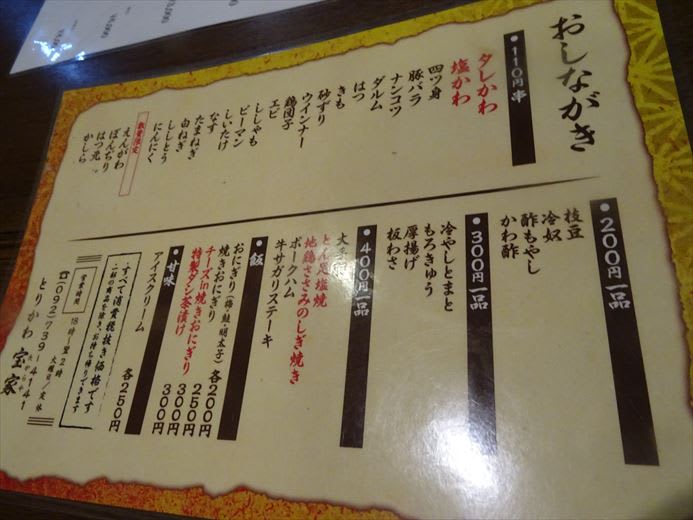 おしながき
●110円串
タレかわ
塩かわ
四ツ身
豚バラ
ナンコツ
ダルム
はつ
きも
砂ずり
ウインナー
鶏団子
エビ
ししゃも
しいたけ
ピーマン
なす
たまねぎ
白ねぎ
ししとう
にんにく
数量限定
えんがわ
ぼんぢり
はつ元
かしら
●200円一品
枝豆
冷奴
酢もやし
かわ酢
●300円一品
冷やしとまと
もろきゅう
厚揚げ
板わさ
●400円一品
とん足塩焼
地鶏ささみのしぎ焼き
ポークハム
牛サガリステーキ
●飯
おにぎり(梅・鮭・明太子) 各200円
焼きおにぎり 250円
チーズin焼きおにぎり 300円
特製タン茶漬け 300円
●甘味
アイスクリーム 各250円
すべて消費税抜き価格です
一部の商品を除き、お持ち帰りできます
営業時間 18時〜翌2時
火曜日定休
☎(092)739-4141
とりかわ 宝家